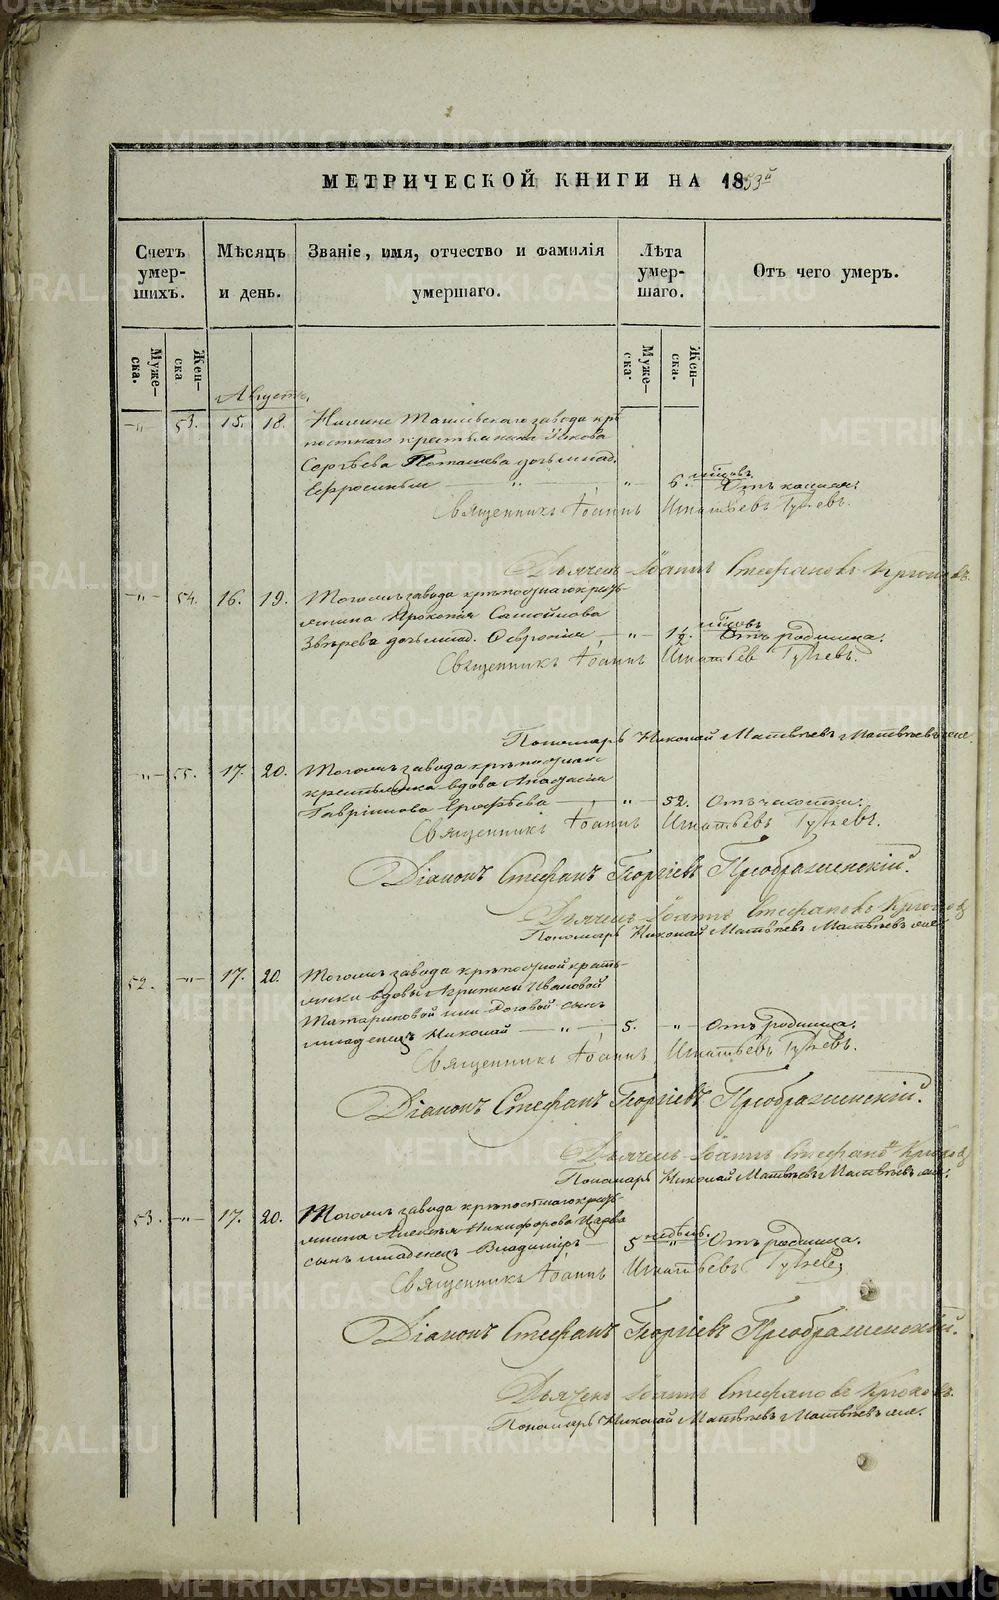 МЕТРИЧЕСКОЙ КНИГИ НА 1853й
Счетъ умер- шихъ.
Мѣсяцъ и день.
Званіе, имя, отчество и фамилія умершаго.
Лѣта умер- шаго.
Отъ чего умеръ.
Муже- ска.
Жен- ска
Муже- ска.
Жен- ска.
Августъ.
-"- 53. 15. 18. Нижне Тагильскаго завода крѣ-
постнаго крестьянина Іякова
Сергѣева Поташева дочь млад.
Ефросинья " -"- 6. мѣсцовъ. Отъ кашля.
Священникъ Іоаннъ Игнатьевъ
Дьячекъ Іоаннъ Стефановъ Крюковъ
-"- 54. 16. 19. Тогожъ завода крѣпостнаго кресть-
янина Прокопія Самойлова
Звѣрева дочь млад. Феvронія, -"- 1½. мѣсцовъ Отъ родимца.
Священникъ Іоаннъ Игнатьевъ
Пономарь Николай Матвѣевъ Матвѣевъ
-"- 55. 17. 20. Тогожъ завода крѣпостная
крестьянка вдова Анастасія
Гавріилова Ерофѣева -"- 52. Отъ чахотки.
Священникъ Іоаннъ Игнатьевъ
Діаконъ Стефанъ Георгіевъ Преображенскій.
Дьячекъ Іоаннъ Стефановъ Крюковъ
Пономарь Николай Матвѣевъ Матвѣевъ
52. -"- 17. 20. Тогожъ завода крѣпостной кресть-
янки вдовы Агрипины Ивановой
сынъ
младенецъ Николай -"- 5. " Отъ родимца.
Священникъ Іоаннъ Игнатьевъ
Діаконъ Стефанъ Георгіевъ Преображенскій.
Дьячекъ Іоаннъ Стефановъ Крюковъ
Пономарь Николай Матвѣевъ Матвѣевъ
53. -"- 17. 20. Тогожъ завода крѣпостнаго кресть-
янина Алексѣя Никифорова
сынъ младенецъ Владиміръ 5 недѣль. " Отъ родимца.
Священникъ Іоаннъ Игнатьевъ
Діаконъ Стефанъ Георгіевъ Преображенскій.
Дьячекъ Іоаннъ Стефановъ Крюковъ.
Пономарь Николай Матвѣевъ Матвѣевъ
METRIKI.GASO-URAL.RU